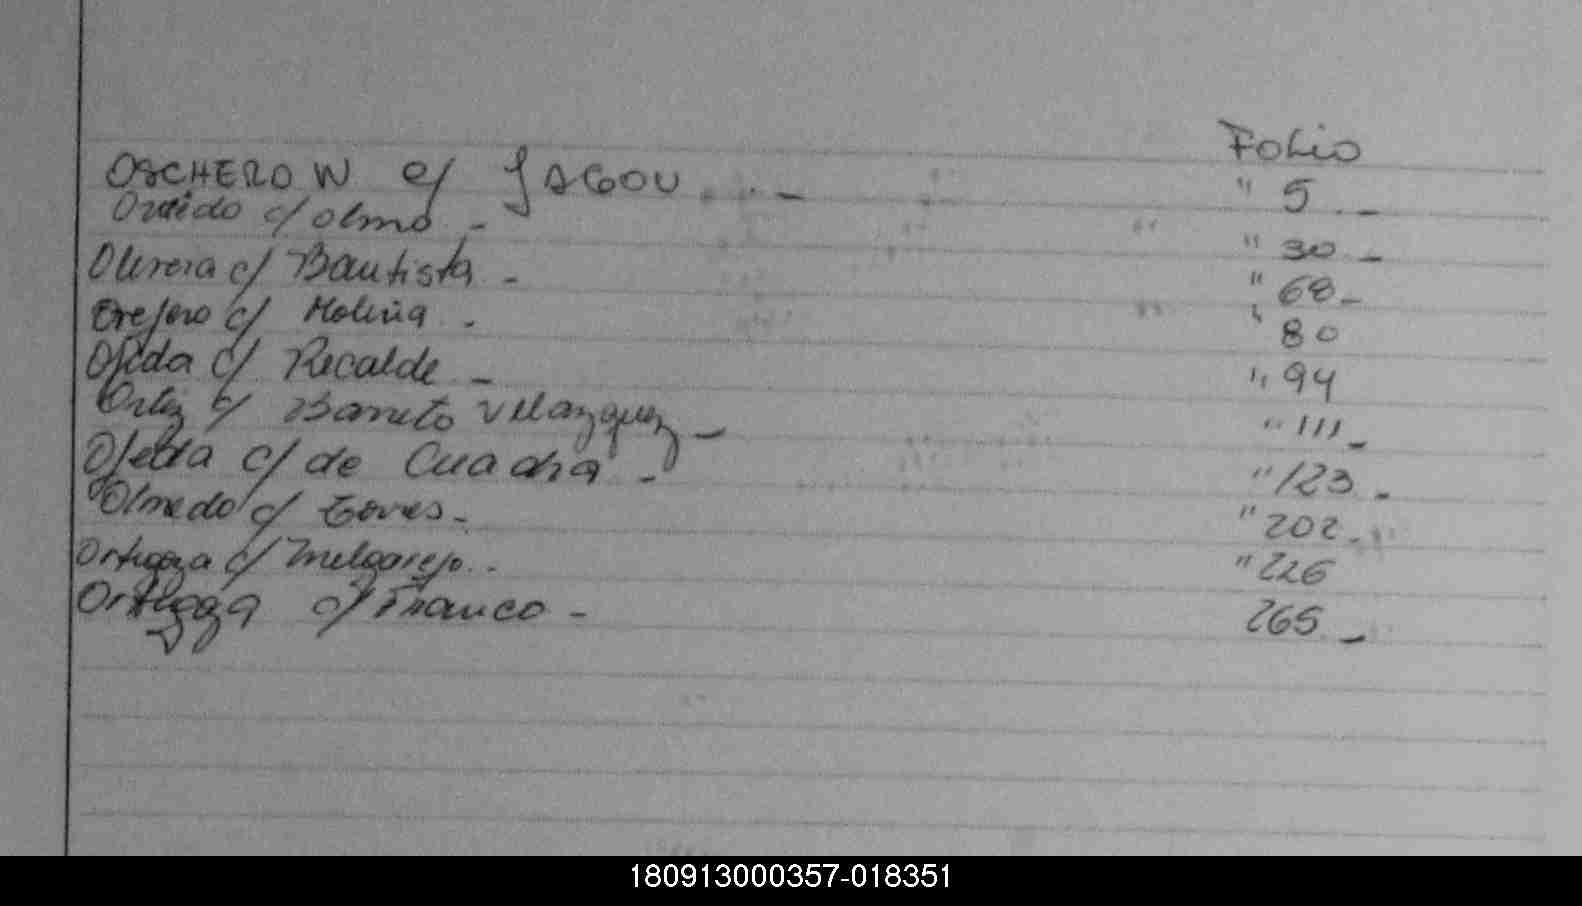 Folio
OSCHEROW c/ JAGOU . . . - " 5 . -
Oviedo c/ olmo - " 30 -
Olivera c/ Bautista - " 68 -
c/ Molina - " 80
Ojeda c/ Recalde - " 94
Ortiz c/ Barreto Velazquez - " 111 -
Ojeda c/ de Cuadra - " 123 -
Olmedo c/ Torres - " 202 -
Ortigoza c/ Melgarejo - " 226
Ortigoza c/ Franco - 265 -
180913000357-018351